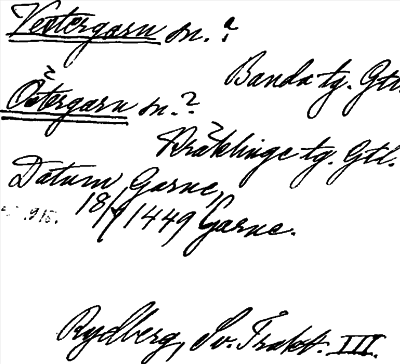 Västergarn sn.?
Banda tg. Gtl.
Östergarn sn.?
Kräklinge tg. Gtl.
Datum Garne,
18/ 1449 Garne.
Rydberg, Sv. Trakt. III.